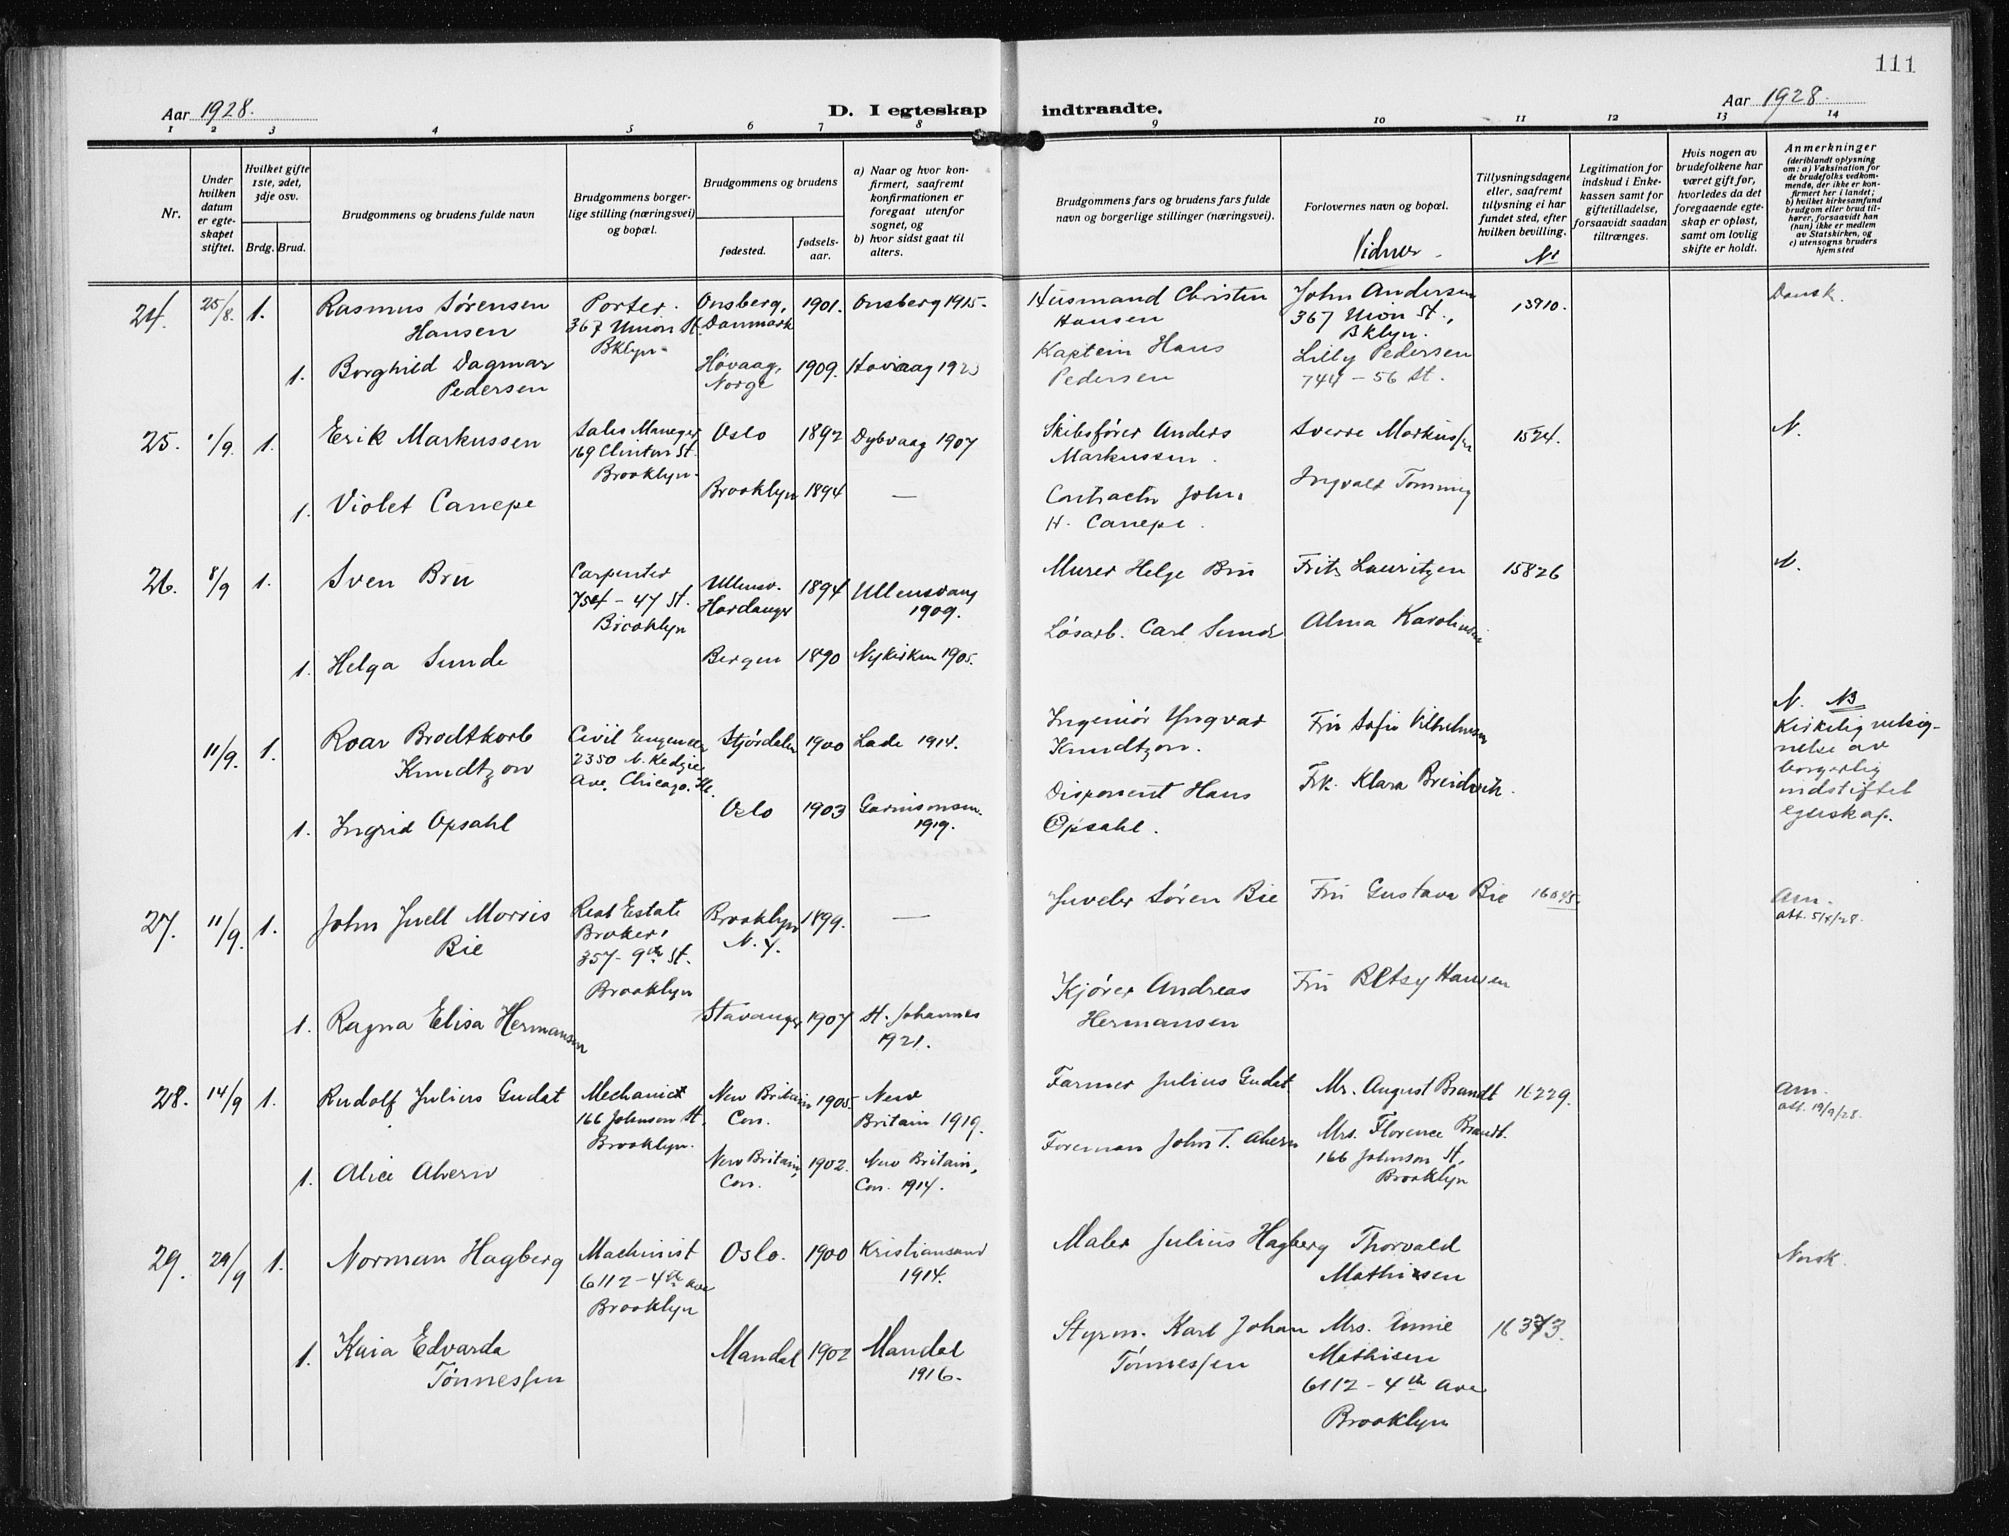 111
Aar 1928.
D. I egteskap indtraadte.
Aar 1928.
1 2 3 4 5 6 7 8 9 10 11 12 13 14
Nr.
Under
hvilken
datum
er egte-
skapet
stiftet.
Hvilket gifte
1ste, 2det,
3dje osv.
Brdg. Brud.
Brudgommens og brudens fulde navn
Brudgommens borger-
lige stilling (næringsvei)
og bopæl.
Brudgommens og brudens
fødested.
fødsels-
aar.
a) Naar og hvor kon-
firmert, saafremt
konfirmationen er
foregaat utenfor
sognet, og
b) hvor sidst gaat til
alters.
Brudgommens fars og brudens fars fulde
navn og borgerlige stillinger (næringsvei).
Forlovernes navn og bopæl.
Vidner.
Tillysningsdagene
eller, saafremt
tillysning ei har
fundet sted, efter
hvilken bevilling.
Nr
Legitimation for
indskud i Enke-
kassen samt for
giftetilladelse,
forsaavidt saadan
tiltrænges.
Hvis nogen av
brudefolkene har
været gift før,
hvorledes da det
foregaaende egte-
skap er opløst,
samt om lovlig
skifte er holdt.
Anmerkninger
(deriblandt oplysning
om: a) Vaksination for
de brudefolks vedkom-
mende, der ikke er kon-
firmert her i landet;
b) hvilket kirkesamfund
brudgom eller brud til-
hører, forsaavidt han
(hun) ikke er medlem
av Statskirken, og
c) utensogns bruders
hjemsted
24. 25/8. 1. Rasmus Sørensen
Hansen
Porter.
367 Union St.
Bklyn.
Onsberg,
Danmark
1901. Onsberg 1915.
Husmand Christen
Hansen
John Andersen
367 Union St.,
Bklyn.
13910.
Dansk.
1. Borghild Dagmar
Pedersen
Høvaag,
Norge
1909. Høvaag 1923
Kaptein Hans
Pedersen
Lilly Pedersen
744 - 56 St.
25. 1/9. 1. Erik Markussen
Sales Maneger
169 Clinton St.
Brooklyn.
Oslo 1892 Dybvaag 1907
Skibsfører Anders
Markussen.
Sverre Markussen
1524.
N.
1. Violet Canepe
Brooklyn 1894 —
Contractor John
H. Canepe.
Ingvald Tømming
26. 8/9 1. Sven Bru
Carpenter
754 - 47 St.
Brooklyn
Ullensv.
Hardanger
1894 Ullensvang
1909.
Murer Helge Bru
Frits Lauritzen
15826
N.
1. Helga Sunde
Bergen 1890 Nykirken 1905.
Løsarb. Carl Sunde
Alma Karolinsen
11/9. 1. Roar Brodtkorb
Knudtzon
Civil Engeneer
2350 N. Kedzie
Ave, Chicago. Ill.
Stjørdalen 1900 Lade 1914.
Ingeniør Yngvar
Knudtzon.
Fru Sofie Vilhelmsen
N. NB
Kirkelig velsig-
nelse av
borgerlig
indstiftet
egteskap.
1. Ingrid Opsahl
Oslo 1903 Garnisonsm.
1919.
Disponent Hans
Opsahl.
Frk. Klara Breidvik.
27. 11/9. 1. John Juell Morris
Bie
Real Estate
Broker,
357 - 9th St.
Brooklyn
Brooklyn
N.Y.
1899. —
Juveler Søren Bie
Fru Gustava Bie
Am.
att. 5/X/28.
1. Ragna Elisa Hermansen
Stavanger 1907 St. Johannes
1921.
Kjører Andreas
Hermansen
Fru Betsy Hansen
28. 14/9 1. Rudolf Julius Gudat
Mechanict
166 Johnson St.
Brooklyn.
New Britain
Con.
1905. New
Britain 1919.
Farmer Julius Gudat
Mr. August Brandt
16229.
Am.
att. 19/9/28.
1. Alice Ahern
New Britain,
Con.
1902. New Britain,
Con. 1914.
Foreman John T. Ahern
Mrs. Florence Brandt.
166 Johnson St,
Brooklyn
29. 29/9 1. Norman Hagberg
Machinist
6112 - 4th ave
Brooklyn
Oslo. 1900 Kristiansand
1914.
Maler Julius Hagberg
Thorvald
Mathisen
Norsk.
1. Kaia Edvarda
Tønnessen
Mandal 1902 Mandal
1916.
Styrm. Karl Johan
Tønnessen
Mrs. Annie
Mathisen
6112 - 4th Ave
Brooklyn
16373.